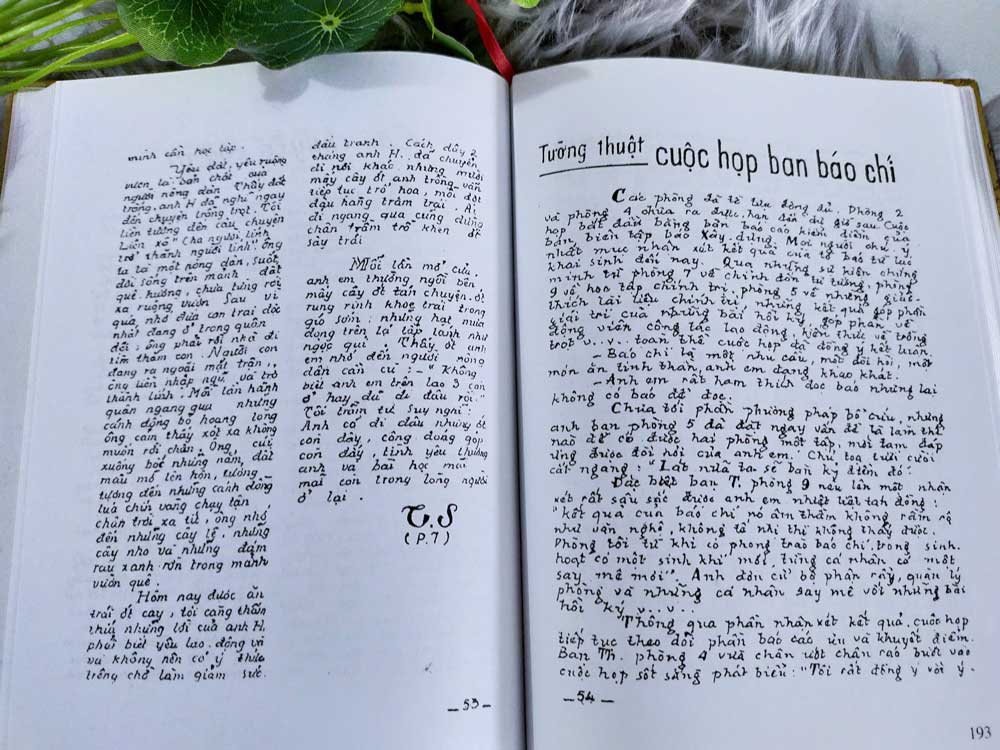 mình cần học tập.
Yêu đất, yêu ruộng
vườn là bản chất của
người nông dân. Thấy đất
trống, anh H đã nghĩ ngay
đến chuyện trồng trọt. Tôi
liên tưởng đến câu chuyện
Liên xô "Cha người lính
trở thành người lính". Ông
ta là một nông dân, suốt
đời sống trên mảnh đất
quê hương, chưa từng rời
xa ruộng vườn. Sau vì
quá nhớ đứa con trai độc
nhất đang ở trong quân
đội, ông phải rời nhà đi
tìm thăm con. Người con
đang ra ngoài mặt trận,
ông liền nhập ngũ và trở
thành lính. Mỗi lần hành
quân ngang qua những
cánh đồng bỏ hoang lòng
ông cảm thấy xót xa không
muốn rời chân. Ông cúi
xuống bốc những nắm đất
màu mỡ lên hôn, tưởng
tượng đến những cánh đồng
lúa chín vàng chạy tận
chân trời xa tít, ông nhớ
đến những cây lê, những
cây nho và những đám
rau xanh rờn trong mảnh
vườn quê.
Hôm nay được ăn
trái ớt cay, tôi càng thấm
thía những lời của anh H.
phải biết yêu lao động và
và không nên có ý thức
trông chờ làm giảm sức
đấu tranh. Cách đây 2
tháng anh H. đã chuyển
đi nơi khác nhưng mười
mấy cây ớt anh trồng vẫn
tiếp tục trổ hoa, mỗi đợt
đậu hàng trăm trái. Ai
đi ngang qua cũng dừng
chân trầm trồ khen ớt
sây trái.
Mỗi lần mở cửa,
anh em thường ngồi bên
mấy cây ớt tán chuyện. Ớt
rung rinh khoe trái trong
gió sớm; những hạt mưa
đọng trên lá lấp lánh như
ngọc quí. Thấy ớt anh
em nhớ đến người nông
dân cần cù: - "Không
biết anh em trên lao 3 còn
ở hay đã đi đâu rồi."
Tôi trầm tư suy nghĩ:
Anh có đi đâu nhưng ớt
còn đây, công đóng góp
còn đây, tình yêu thương
anh và bài học mai
mãi còn trong lòng người
ở lại.
T.S
(P.7)
_ 53 _
Tường thuật cuộc họp ban báo chí
Các phòng đã tề tựu đông đủ. Phòng 2
và phòng 4 chưa ra được, hẹn đến dự giờ sau. Cuộc
họp bắt đầu bằng bản báo cáo kiểm điểm của
ban biên tập báo Xây dựng. Mọi người chú ý
nhất mục nhận xét kết quả của tờ báo từ lúc
khai sinh đến nay. Qua những sự kiện chứng
minh từ phòng 7 về chỉnh đốn tư tưởng, phòng
9 về học tập chính trị, phòng 5 về những giải
thích tài liệu chính trị, những kết quả góp phần
giải trí của những bài hồi ký, góp phần về
động viên công tác lao động, kiến thức về trồng
trọt v..v.. toàn thể cuộc họp đã đồng ý kết luận.
- Báo chí là một nhu cầu, một đòi hỏi, một
món ăn tinh thần, anh em đang khao khát.
- Anh em rất ham thích đọc báo nhưng lại
không có báo để đọc.
Chưa tới phần phương pháp bổ cứu, nhưng
anh bạn phòng 5 đã đặt ngay vấn đề là làm thế
nào để có được hai phòng một tập, mới tạm đáp
ứng được đòi hỏi của anh em. Chủ tọa tươi cười
cắt ngang: "Lát nữa ta sẽ bàn kỹ điểm đó".
Đặc biệt bạn T. phòng 9 nêu lên một nhận
xét rất sâu sắc được anh em nhiệt liệt tán đồng:
"kết quả của báo chí nó âm thầm không rầm rộ
như văn nghệ, không tả nhị thị không thấy được.
Phòng tôi từ khi có phong trào báo chí, trong sinh
hoạt có một sinh khí mới, từng cá nhân có một
say mê mới". Anh đơn cử bộ phận rẫy, quản lý
phòng và những cá nhân say mê với những bài
hồi ký v..v..
Thông qua phần nhận xét kết quả, cuộc họp
tiếp tục theo dõi phần báo cáo ưu và khuyết điểm.
Bạn Th. phòng 4 vừa chân ướt chân ráo bước vào
cuộc họp sốt sắng phát biểu: "Tôi rất đồng ý với ý
_ 54 _
193